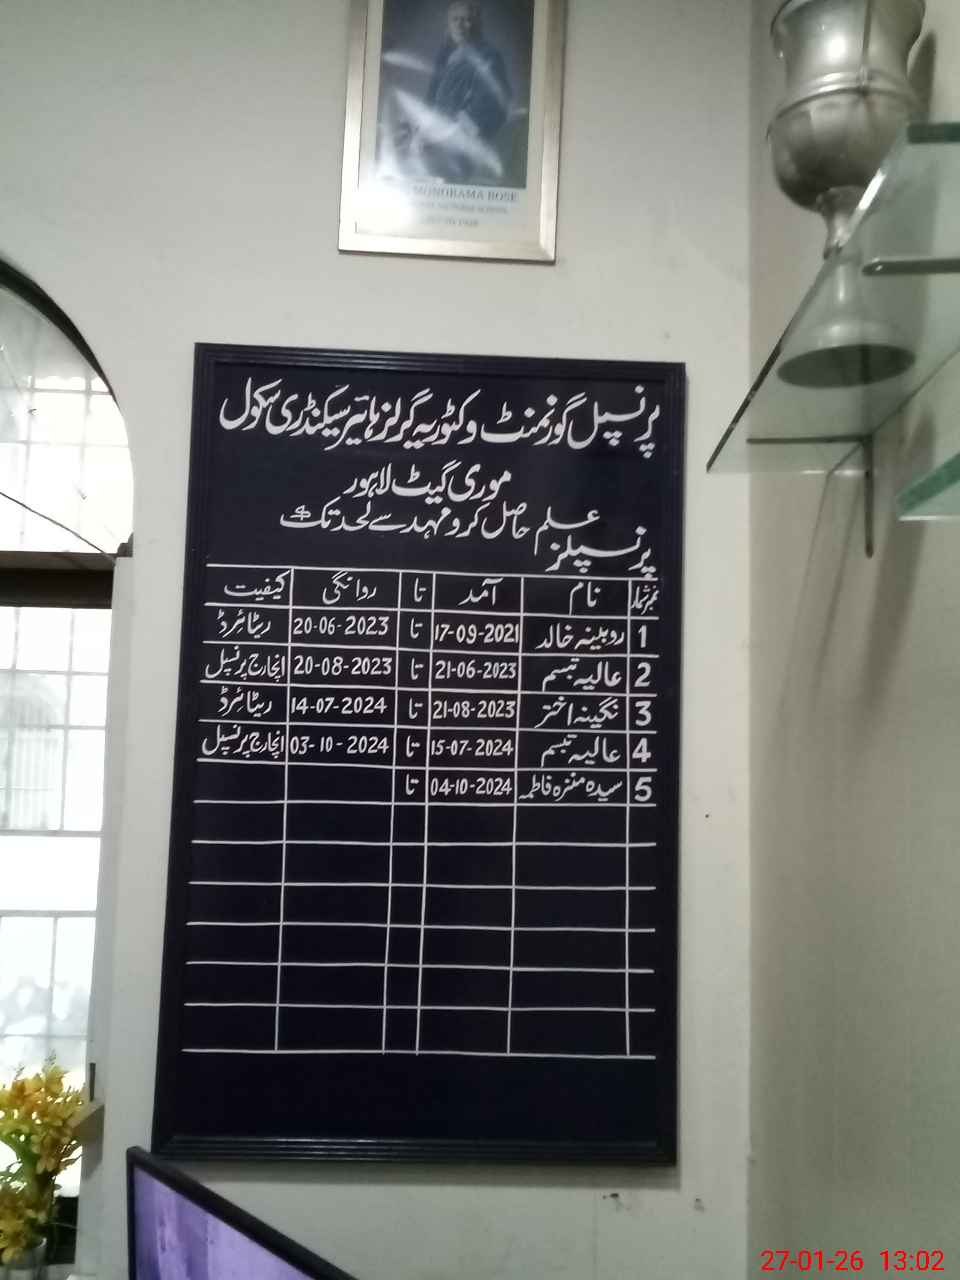 MONORAMA BOSE
پرنسپل گورنمنٹ وکٹوریہ گرلز ہائیر سیکنڈری سکول
موری گیٹ لاہور
علم حاصل کرو مہد سے لحد تک
پرنسپلز
نمبر شمار نام آمد تا روانگی کیفیت
1 روبینہ خالد 17-09-2021 تا 20-06-2023 ریٹائرڈ
2 عالیہ تبسم 21-06-2023 تا 20-08-2023 انچارج پرنسپل
3 نگینہ اختر 21-08-2023 تا 14-07-2024 ریٹائرڈ
4 عالیہ تبسم 15-07-2024 تا 03-10-2024 انچارج پرنسپل
5 سیدہ منزہ فاطمہ 04-10-2024 تا
27-01-26 13:02